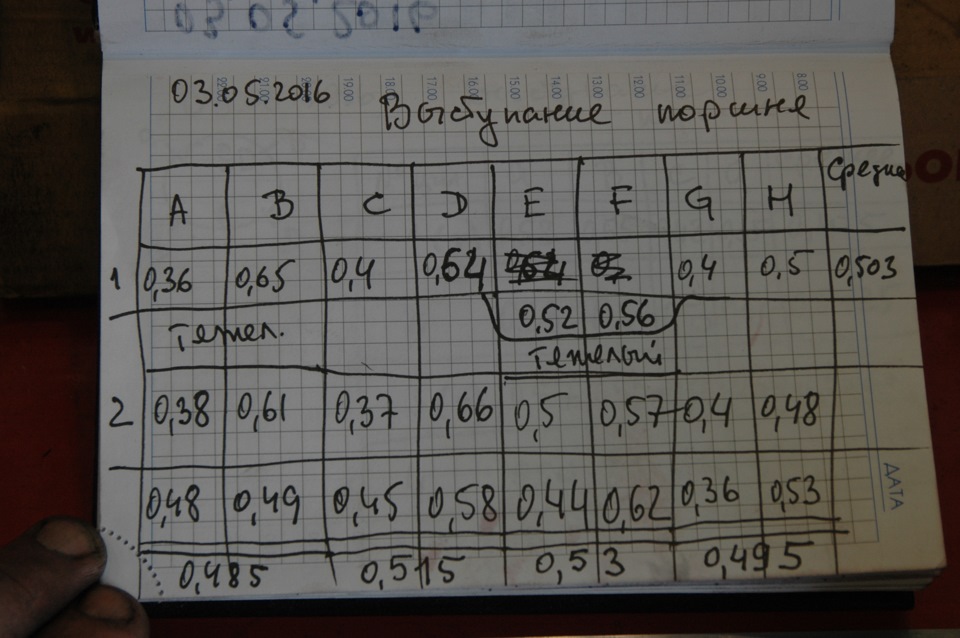 03.05.2016
22.00 21.00 20.00 19.00 18.00 17.00 16.00 15.00 14.00 13.00 12.00 11.00 10.00 9.00 8.00
03.05.2016
Выступание поршня
A B C D E F G H Средне
1 0,36 0,65 0,4 0,64 0,4 0,5 0,503
0,52 0,56
тежел. тежелый
2 0,38 0,61 0,37 0,66 0,5 0,57 0,4 0,48
0,48 0,49 0,45 0,58 0,44 0,62 0,36 0,53
0,485 0,515 0,53 0,495
ДАТА